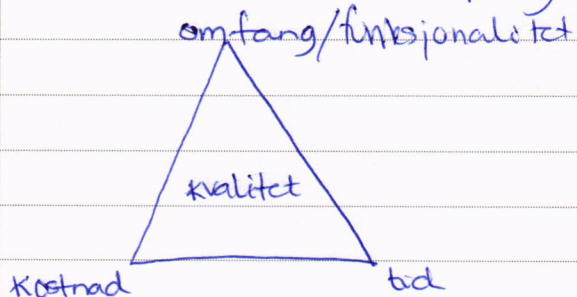 omfang/funksjonalitet
kvalitet
Kostnad tid